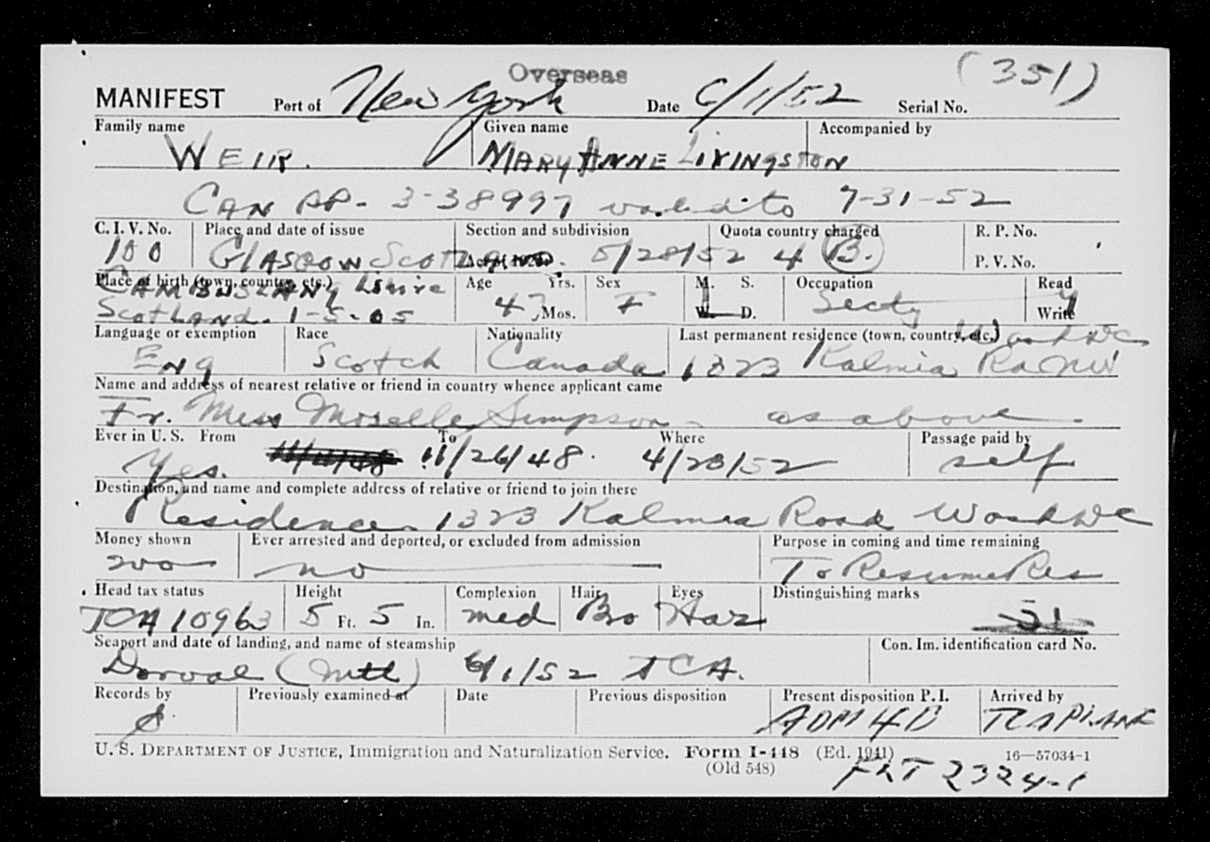 Overseas
(351)
MANIFEST Port of New York Date 6/1/52 Serial No.
Family name Given name Accompanied by
WEIR. MARY ANNE LIVINGSTON
CAN PP. 3-38997 valid to 7-31-52
C. I. V. No. Place and date of issue Section and subdivision Quota country charged R. P. No.
100 GLASGOW SCOTLAND. 5/28/52 4 B. P. V. No.
Place of birth (town, country, etc.) Age Yrs. Sex M. S. Occupation Read
CAMBUSLANG
SCOTLAND. 1-5-05 47 Mos. F W. D. Secty Write
Language or exemption Race Nationality Last permanent residence (town, country, etc.) Wash DC
ENG Scotch Canada 1323 Kalmia Rd NW
Name and address of nearest relative or friend in country whence applicant came
Fr. Miss Moselle Simpson - as above.
Ever in U. S. From To Where Passage paid by
Yes. 11/26/48. 4/23/52 self
Destination, and name and complete address of relative or friend to join there
Residence 1323 Kalmia Road Wash DC
Money shown Ever arrested and deported, or excluded from admission Purpose in coming and time remaining
200 no To Resume Res
Head tax status Height Complexion Hair Eyes Distinguishing marks
TCA 10963 5 Ft. 5 In. med Bro Haz
Seaport and date of landing, and name of steamship Con. Im. identification card No.
Dorval (Mtl) 6/1/52 TCA.
Records by Previously examined at Date Previous disposition Present disposition P. I. Arrived by
ADM 4B TCA PLANE
U. S. DEPARTMENT OF JUSTICE, Immigration and Naturalization Service. Form I-448 (Ed. 1941) 16—57034-1
(Old 548) FLT 2324-1